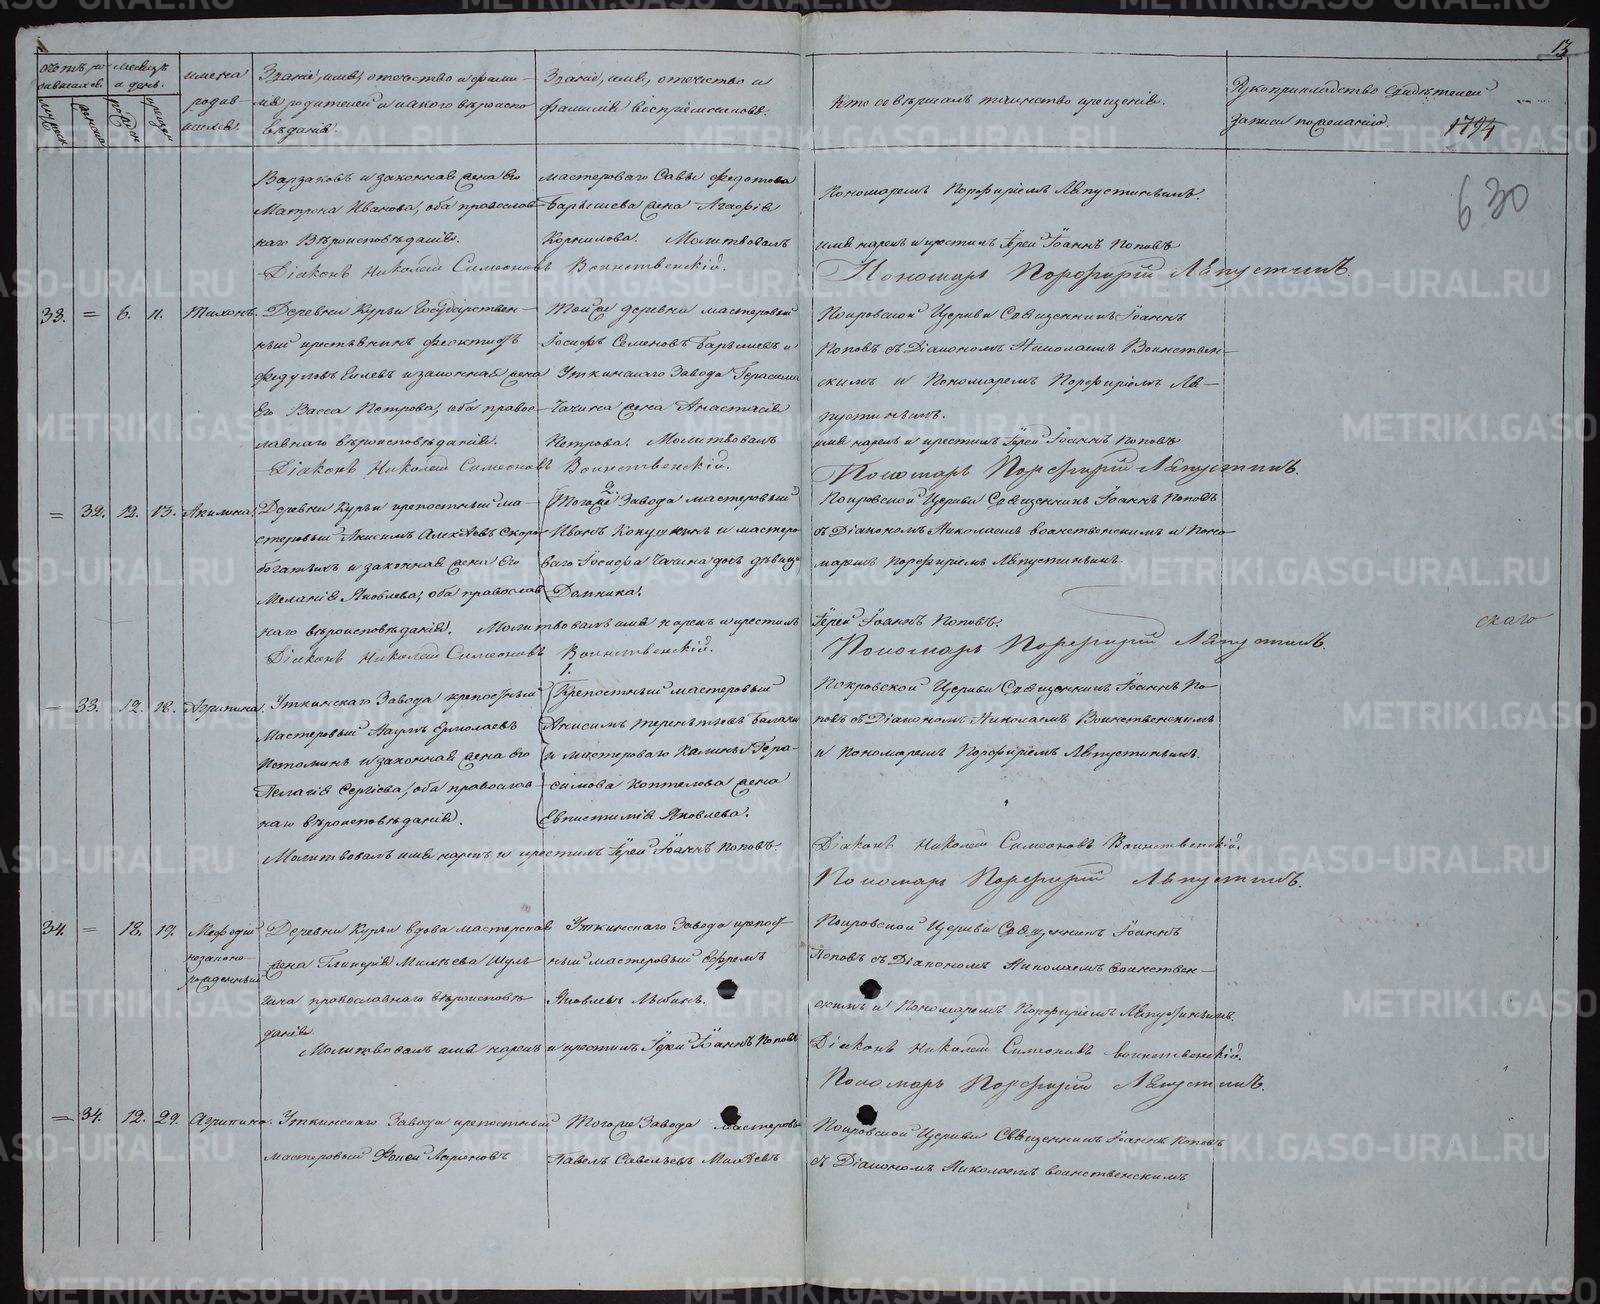 13
Счетъ ро-
дившихся.
Мѣсяцъ
и день.
Имена
родив-
шихся.
Званіе, имя, отечество и фами-
лія родителей и какого вѣроиспо-
вѣданія.
Званіе, имя, отечество и
фамилія воспріемниковъ.
Кто совершалъ таинство крещенія.
Рукоприкладство свидѣтелей
записи по желанію.
1794
630
Варзаковъ и законная жена его
Матрона Иванова, оба православ-
наго Вѣроисповѣданія.
мастероваго Савы Федотова
Барышева жена Агафія
Корнилова. Молитвовалъ
Пономаремъ Порфиріемъ Августинымъ.
имя нарекъ и крестилъ Іерей Іоаннъ Поповъ
Діаконъ Николай Симеоновъ Воинственскій.
Пономарь Порфирій Августинъ.
33. = 6. 11. Тихонъ.
Деревни Курьи Государствен-
ный крестьянинъ Феоктистъ
Федуловъ Еилевъ и законная жена
Его Васса Петрова, оба правос-
лавнаго вѣроисповѣданія.
Той же деревни мастеровый
Іосифъ Семеновъ Барышевъ и
Уткинскаго Завода Герасима
Чачина жена Анастасія
Петрова. Молитвовалъ
Покровской Церкви Священникъ Іоаннъ
Поповъ съ Діакономъ Николаемъ Воинствен-
скимъ и Пономаремъ Порфиріемъ Ав-
густинымъ.
имя нарекъ и крестилъ Іерей Іоаннъ Поповъ
Діаконъ Николай Симеоновъ Воинственскій.
Пономарь Порфирій Августинъ.
= 32. 12. 13. Акилина.
Деревни Курьи крепостный ма-
стеровый Анисимъ Алексѣевъ Скоро-
богатыхъ и законная жена Его
Меланія Яковлева, оба православ-
наго вѣроисповѣданія.
Тогоже Завода мастеровый
Иванъ Кокушкинъ и мастеро-
ваго Іосифа Чачина дочь дѣвица
Домника.
Покровской Церкви Священникъ Іоаннъ Поповъ
съ Діакономъ Николаемъ Воинственскимъ и Поно-
маремъ Порфиріемъ Августинымъ.
Молитвовалъ имя нарекъ и крестилъ Іерей Іоаннъ Поповъ.
скаго
Діаконъ Николай Симеоновъ Воинственскій.
Пономарь Порфирій Августинъ.
— 33. 12. 18. Агрипина.
Уткинскаго Завода крепостный
Мастеровый Наумъ Ермолаевъ
Истоминъ и законная жена его
Пелагія Сергіева, оба православ-
наго вѣроисповѣданія.
Крепостный мастеровый
Анисимъ Терентьевъ Балакинъ
и мастероваго Калины Гера-
симова Коптелова жена
Евпистимія Яковлева.
Покровской Церкви Священникъ Іоаннъ По-
повъ съ Діакономъ Николаемъ Воинственскимъ
и Пономаремъ Порфиріемъ Августинымъ.
Молитвовалъ имя нарекъ и крестилъ Іерей Іоаннъ Поповъ
Діаконъ Николай Симеоновъ Воинственскій.
Пономарь Порфирій Августинъ.
34. = 18. 19. Мефодій
незаконо-
рожденный
Деревни Курьи вдова мастерская
жена Гликерія Михѣева Шуль-
гина православнаго вѣроисповѣ-
данія.
Уткинскаго Завода крепост-
ный мастеровый Ефремъ
Яковлевъ Лыбинъ.
Покровской Церкви Священникъ Іоаннъ
Поповъ съ Діакономъ Николаемъ Воинствен-
скимъ и Пономаремъ Порфиріемъ Августинымъ.
Молитвовалъ имя нарекъ и крестилъ Іерей Іоаннъ Поповъ
Діаконъ Николай Симеоновъ Воинственскій.
Пономарь Порфирій Августинъ.
= 34. 12. 29. Агрипина.
Уткинскаго Завода крепостный
мастеровый Фокей Ларіоновъ
Тогоже Завода мастеровый
Павелъ Савельевъ Михѣевъ
Покровской Церкви Священникъ Іоаннъ Поповъ
съ Діакономъ Николаемъ Воинственскимъ
METRIKI.GASO-URAL.RU